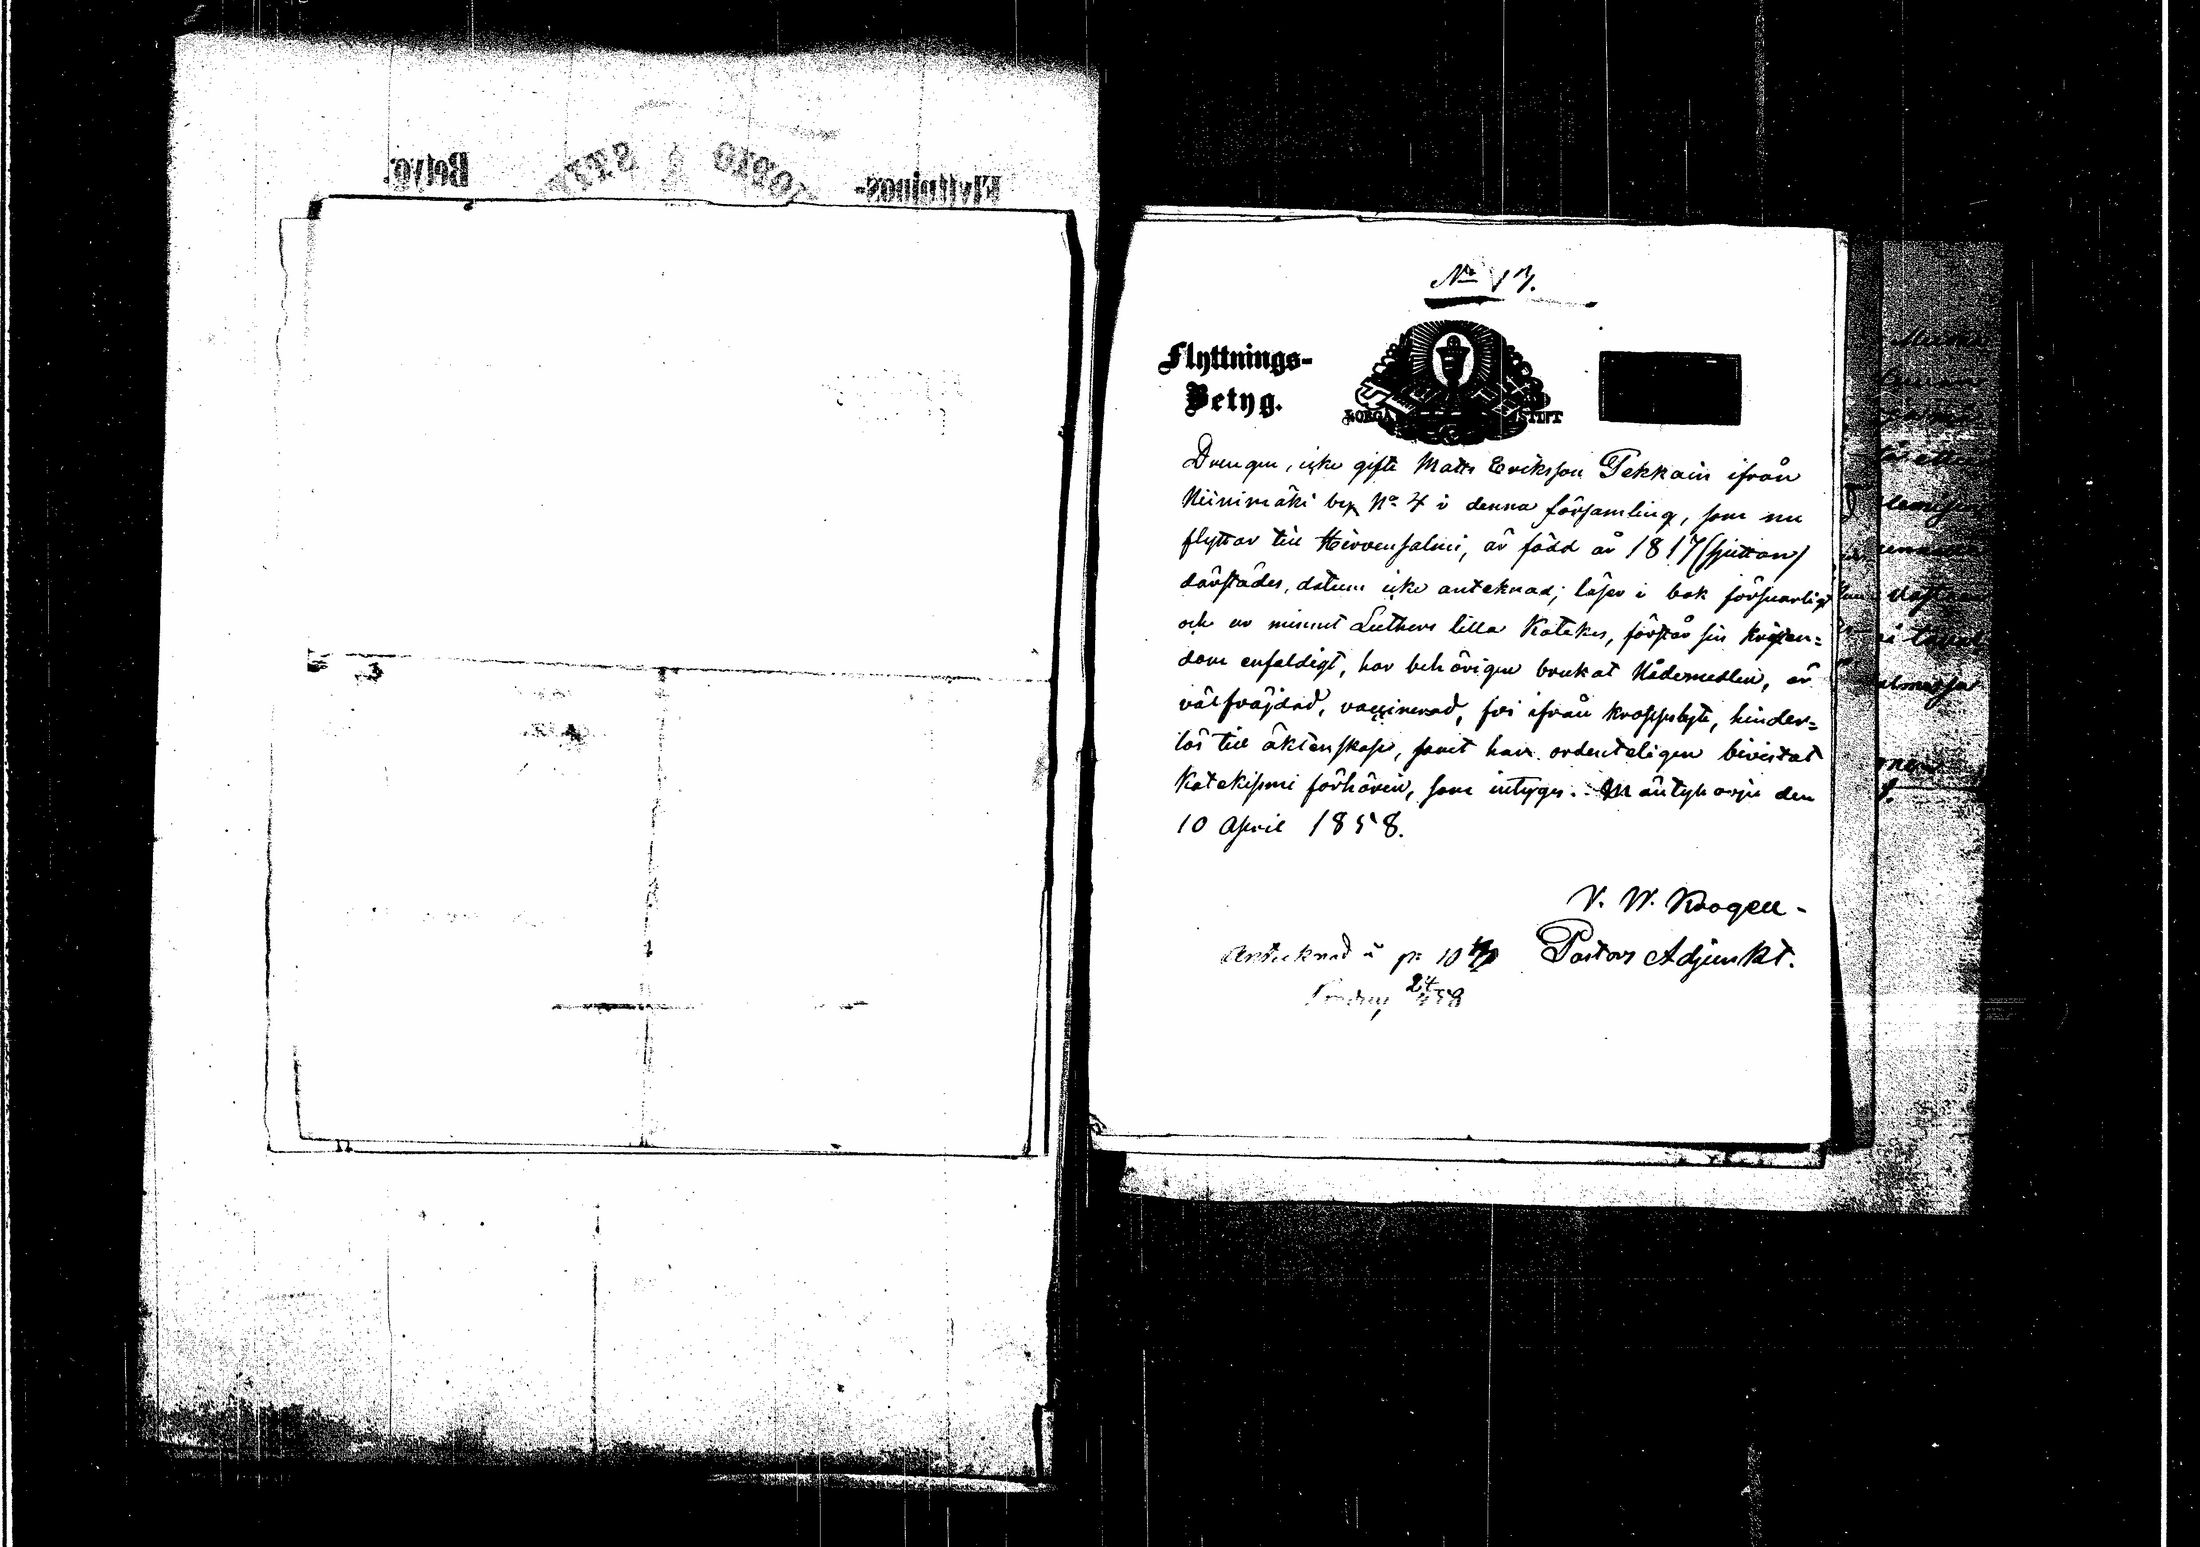 No 13.
Flyttnings-
Betyg.
BORGÅ STIFT
Drengen, icke gifte Matts Eriksson Tekkain ifrån
Niinimäki by No 4 i denna församling, som nu
flyttar till Hirvensalmi, är född år 1817 (sjutton)
därstädes, datum icke anteknad; läser i bok försvarligt
och ur minnet Luthers lilla Katekes, förstår sin kristen=
dom enfaldigt, har behörigen brukat Nådemedlen, är
välfräjdad, vaccinerad, fri ifrån kroppslyte, hinder=
lös till äktenskap, samt har ordenteligen bivistat
Katekismi förhören, som intygas. Mäntyharju den
10 April 1858.
V. W. Krogell
Pastors Adjunkt.
Antecknad å p:
24